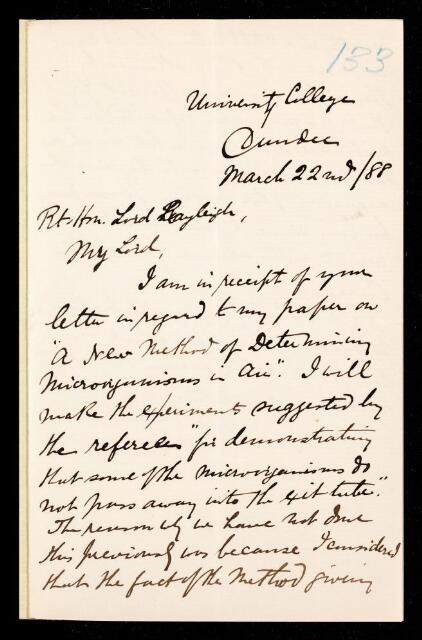 133
University College
Dundee
March 22nd/88
Rt. Hon. Lord Rayleigh,
My Lord,
I am in receipt of your
letter in regard to my paper on
"A New Method of Determining
Microorganisms in Air". I will
make the experiments suggested by
the referees "for demonstrating
that some of the microorganisms do
not pass away into the exit tube."
The reason why we have not done
this previously was because I considered
that the fact of the Method giving